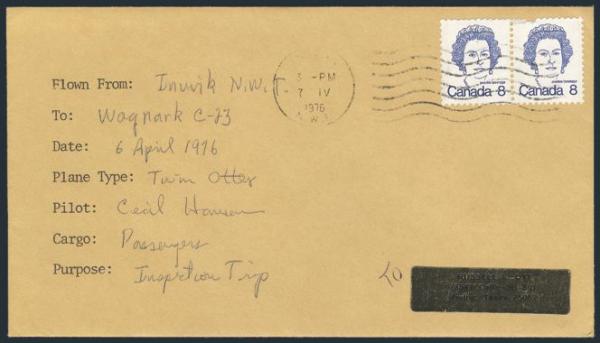 3 - PM
7 IV
1976
Canada 8 Canada 8
Flown From: Inuvik N.W.T.
To: Wagnark C-23
Date: 6 April 1976
Plane Type: Twin Otter
Pilot: Cecil Hansen
Cargo: Passengers
Purpose: Inspection Trip
To